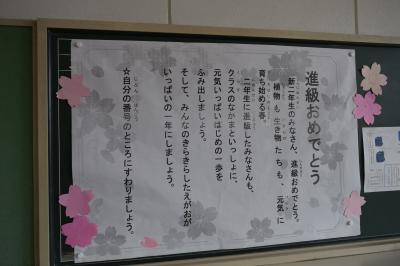 進級おめでとう
新二年生のみなさん、進級おめでとう。
植物も生き物たちも、元気に
育ち始める春。
二年生に進級したみなさんも、
クラスのなかまといっしょに、
元気いっぱいはじめの一歩を
ふみ出しましょう。
そして、みんなのきらきらしたえがおが
いっぱいの一年にしましょう。
☆自分の番号のところにすわりましょう。